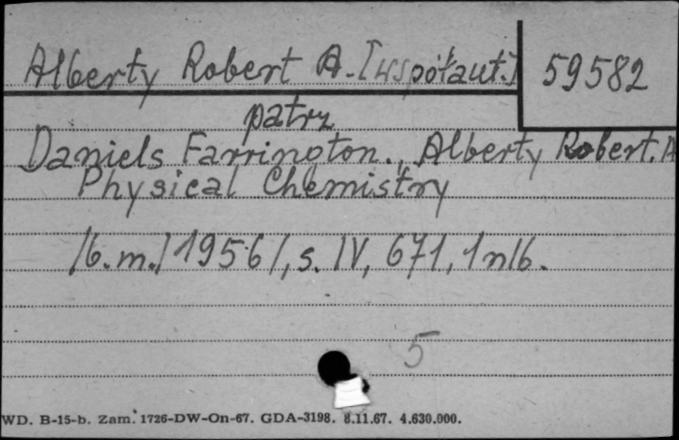 Alberty Robert A. [współaut.]
59582
patrz
Daniels Farrington., Alberty Robert. A
Physical Chemistry
/b.m./ 1956/, s. IV, 671, 1 nlb.
5
WD. B-15-b. Zam. 1726-DW-On-67. GDA-3198. 8.11.67. 4.630.000.